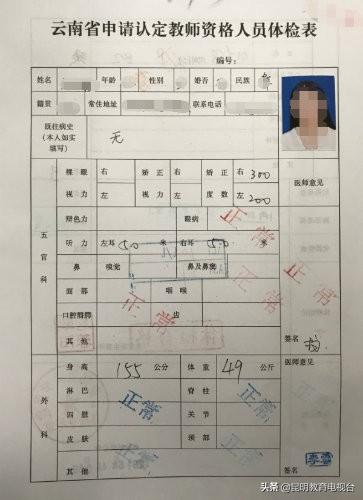 云南省申请认定教师资格人员体检表
编号:
姓名 年龄 性别 婚否 民族
籍贯 常住地址 联系电话
既往病史
(本人如实
填写)
无
裸眼 右 矫正 右 矫正 右 300 医师意见
视力 左 视力 左 度数 左 200
五官科
辩色力 眼病 正常
听力 左耳 5.0 米 右耳 5.0 米
鼻 嗅觉 鼻及鼻窦 正常
面部 咽喉 正常
口腔唇腭 正常 齿 正常
其他 签名
外科
身高 155 公分 体重 49 公斤 医师意见
淋巴 脊柱
四肢 正常 关节 正常 正常
皮肤 颈部
其他 签名
头条 @昆明教育电视台